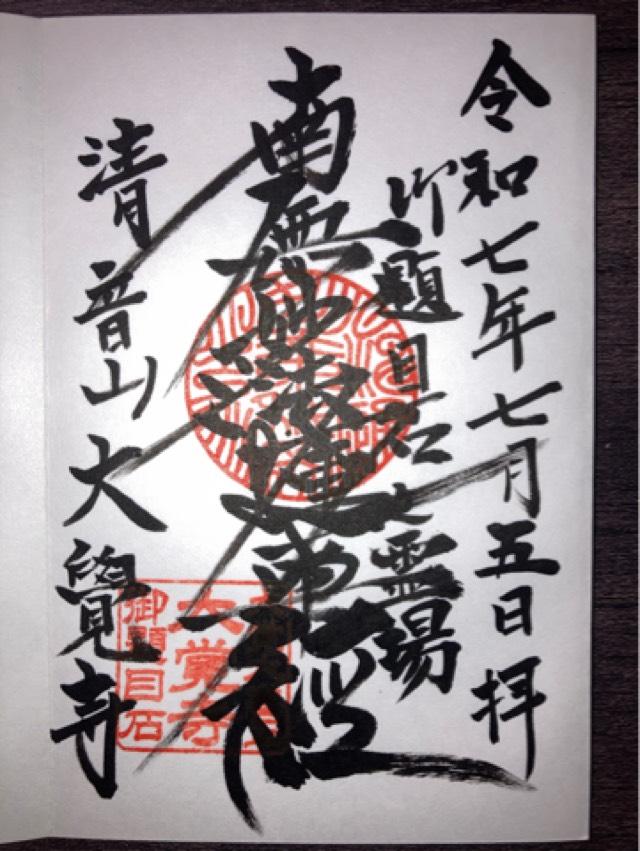 令和七年七月五日拝
御題目石之霊場
南無妙法蓮華経
清音山大覺寺
大覚寺
御題目石